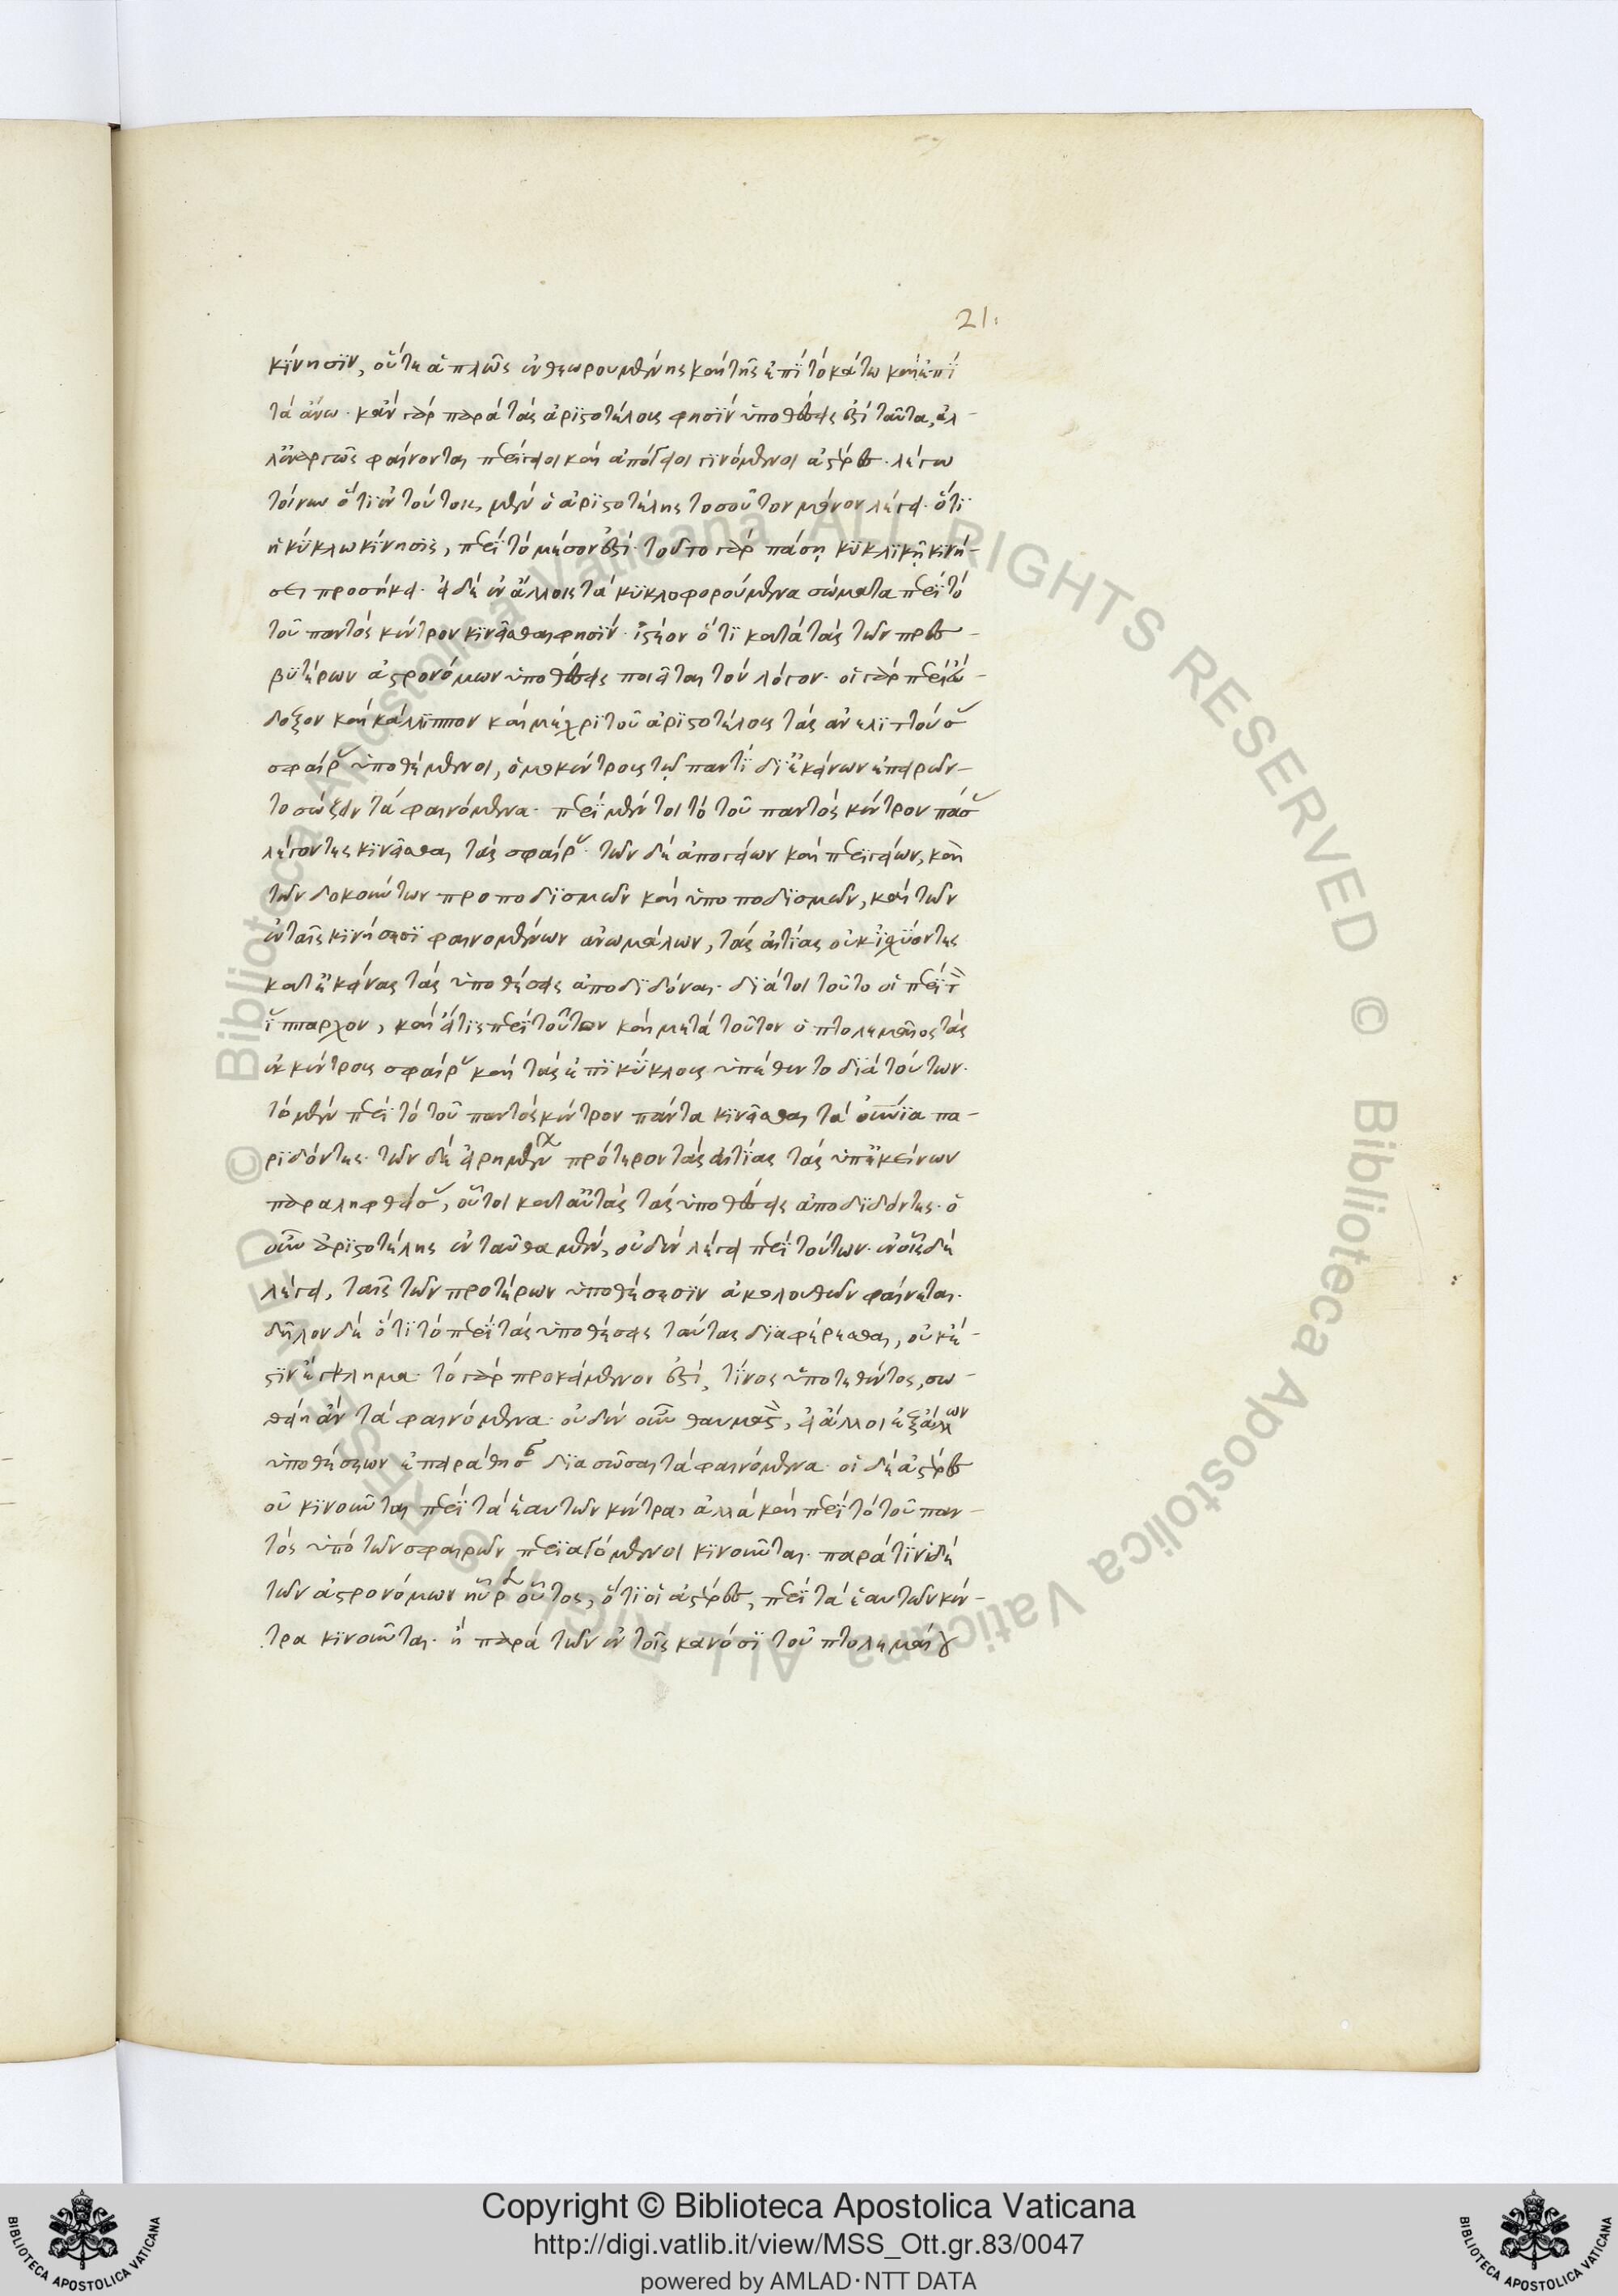 21.
κίνησιν, οὔτε ἁπλῶς ἐνθεωρουμένης καὶ τῆς ἐπὶ τὸ κάτω καὶ ἐπὶ
τὰ ἄνω. κἂν γὰρ παρὰ τὰς ἀριστοτέλους φησὶν ὑποθέσεις ἐστὶ ταῦτα, ἀλ-
λ' ἐναργῶς φαίνονται περίγειοι καὶ ἀπόγειοι γινόμενοι ἀστέρες. λέγω
τοίνυν ὅτι ἐν τούτοις μὲν ὁ ἀριστοτέλης τοσοῦτον μόνον λέγει. ὅτι
ἡ κύκλω κίνησις, περὶ τὸ μέσον ἐστί. τοῦτο γὰρ πάσῃ κυκλικῇ κινή-
σει προσήκει. εἰ δὲ ἐν ἄλλοις τὰ κυκλοφορούμενα σώματα περὶ τὸ
τοῦ παντὸς κέντρον κινεῖσθαι φησίν. ἰστέον ὅτι κατὰ τὰς τῶν πρεσ-
βυτέρων ἀστρονόμων ὑποθέσεις ποιεῖται τὸν λόγον. οἱ γὰρ περὶ εὔ-
δοξον καὶ κάλιππον καὶ μέχρι τοῦ ἀριστοτέλους τὰς ἀνελιττούσας
σφαίρας ὑποθέμενοι, ὁμοκέντρους τῷ παντὶ δι' ἐκείνων ἐπειρῶν-
το σώζειν τὰ φαινόμενα. περὶ μέντοι τὸ τοῦ παντὸς κέντρον πάσας
λέγοντες κινεῖσθαι τὰς σφαίρας. τῶν δὲ ἀπογείων καὶ περιγείων, καὶ
τῶν δοκούντων προποδισμῶν καὶ ὑποποδισμῶν, καὶ τῶν
ἐν ταῖς κινήσεσι φαινομένων ἀνωμάλων, τὰς αἰτίας οὐκ ἰσχύοντες
κατ' ἐκείνας τὰς ὑποθέσεις ἀποδιδόναι. διά τοι τοῦτο οἱ περὶ τὸν
ἵππαρχον, καὶ εἴ τις περὶ τοῦτον καὶ μετὰ τοῦτον ὁ πτολεμαῖος τὰς
ἐκκέντρους σφαίρας καὶ τοὺς ἐπικύκλους ὑπέθεντο διὰ τούτων.
τὸ μὲν περὶ τὸ τοῦ παντὸς κέντρον πάντα κινεῖσθαι τὰ οὐράνια πα-
ριδόντες. τῶν δὲ εἰρημένων πρότερον τὰς αἰτίας τὰς ὑπ' ἐκείνων
παραληφθείσας, οὗτοι κατ' αὐτὰς τὰς ὑποθέσεις ἀποδιδόντες. ὁ
οὖν ἀριστοτέλης ἐνταῦθα μὲν, οὐδὲν λέγει περὶ τούτων. ἐν οἷς δὲ
λέγει, ταῖς τῶν προτέρων ὑποθέσεσιν ἀκολουθῶν φαίνεται.
δῆλον δὲ ὅτι τὸ περὶ τὰς ὑποθέσεις ταύτας διαφέρεσθαι, οὐκ ἔ-
στιν ἔγκλημα. τὸ γὰρ προκείμενον ἐστί, τίνος ὑποτεθέντος, σω-
θείη ἂν τὰ φαινόμενα. οὐδὲν οὖν θαυμαστὸν, εἰ ἄλλοι ἐξ ἄλλων
ὑποθέσεων ἐπειράθησαν διασῶσαι τὰ φαινόμενα. οἱ δὲ ἀστέρες
οὐ κινοῦνται περὶ τὰ ἑαυτῶν κέντρα, ἀλλὰ καὶ περὶ τὸ τοῦ παν-
τὸς ὑπὸ τῶν σφαιρῶν περιαγόμενοι κινοῦνται. παρὰ τίνι δὲ
τῶν ἀστρονόμων ηὗρεν οὗτος, ὅτι οἱ ἀστέρες, περὶ τὰ ἑαυτῶν κέν-
τρα κινοῦνται. ἢ παρὰ τῶν ἐν τοῖς κανόσι τοῦ πτολεμαίου
© Biblioteca Apostolica Vaticana ALL RIGHTS RESERVED © Biblioteca Apostolica Vaticana ALL RIGHTS RESERVED
Copyright © Biblioteca Apostolica Vaticana
http://digi.vatlib.it/view/MSS_Ott.gr.83/0047
powered by AMLAD·NTT DATA
BIBLIOTECA APOSTOLICA VATICANA
BIBLIOTECA APOSTOLICA VATICANA